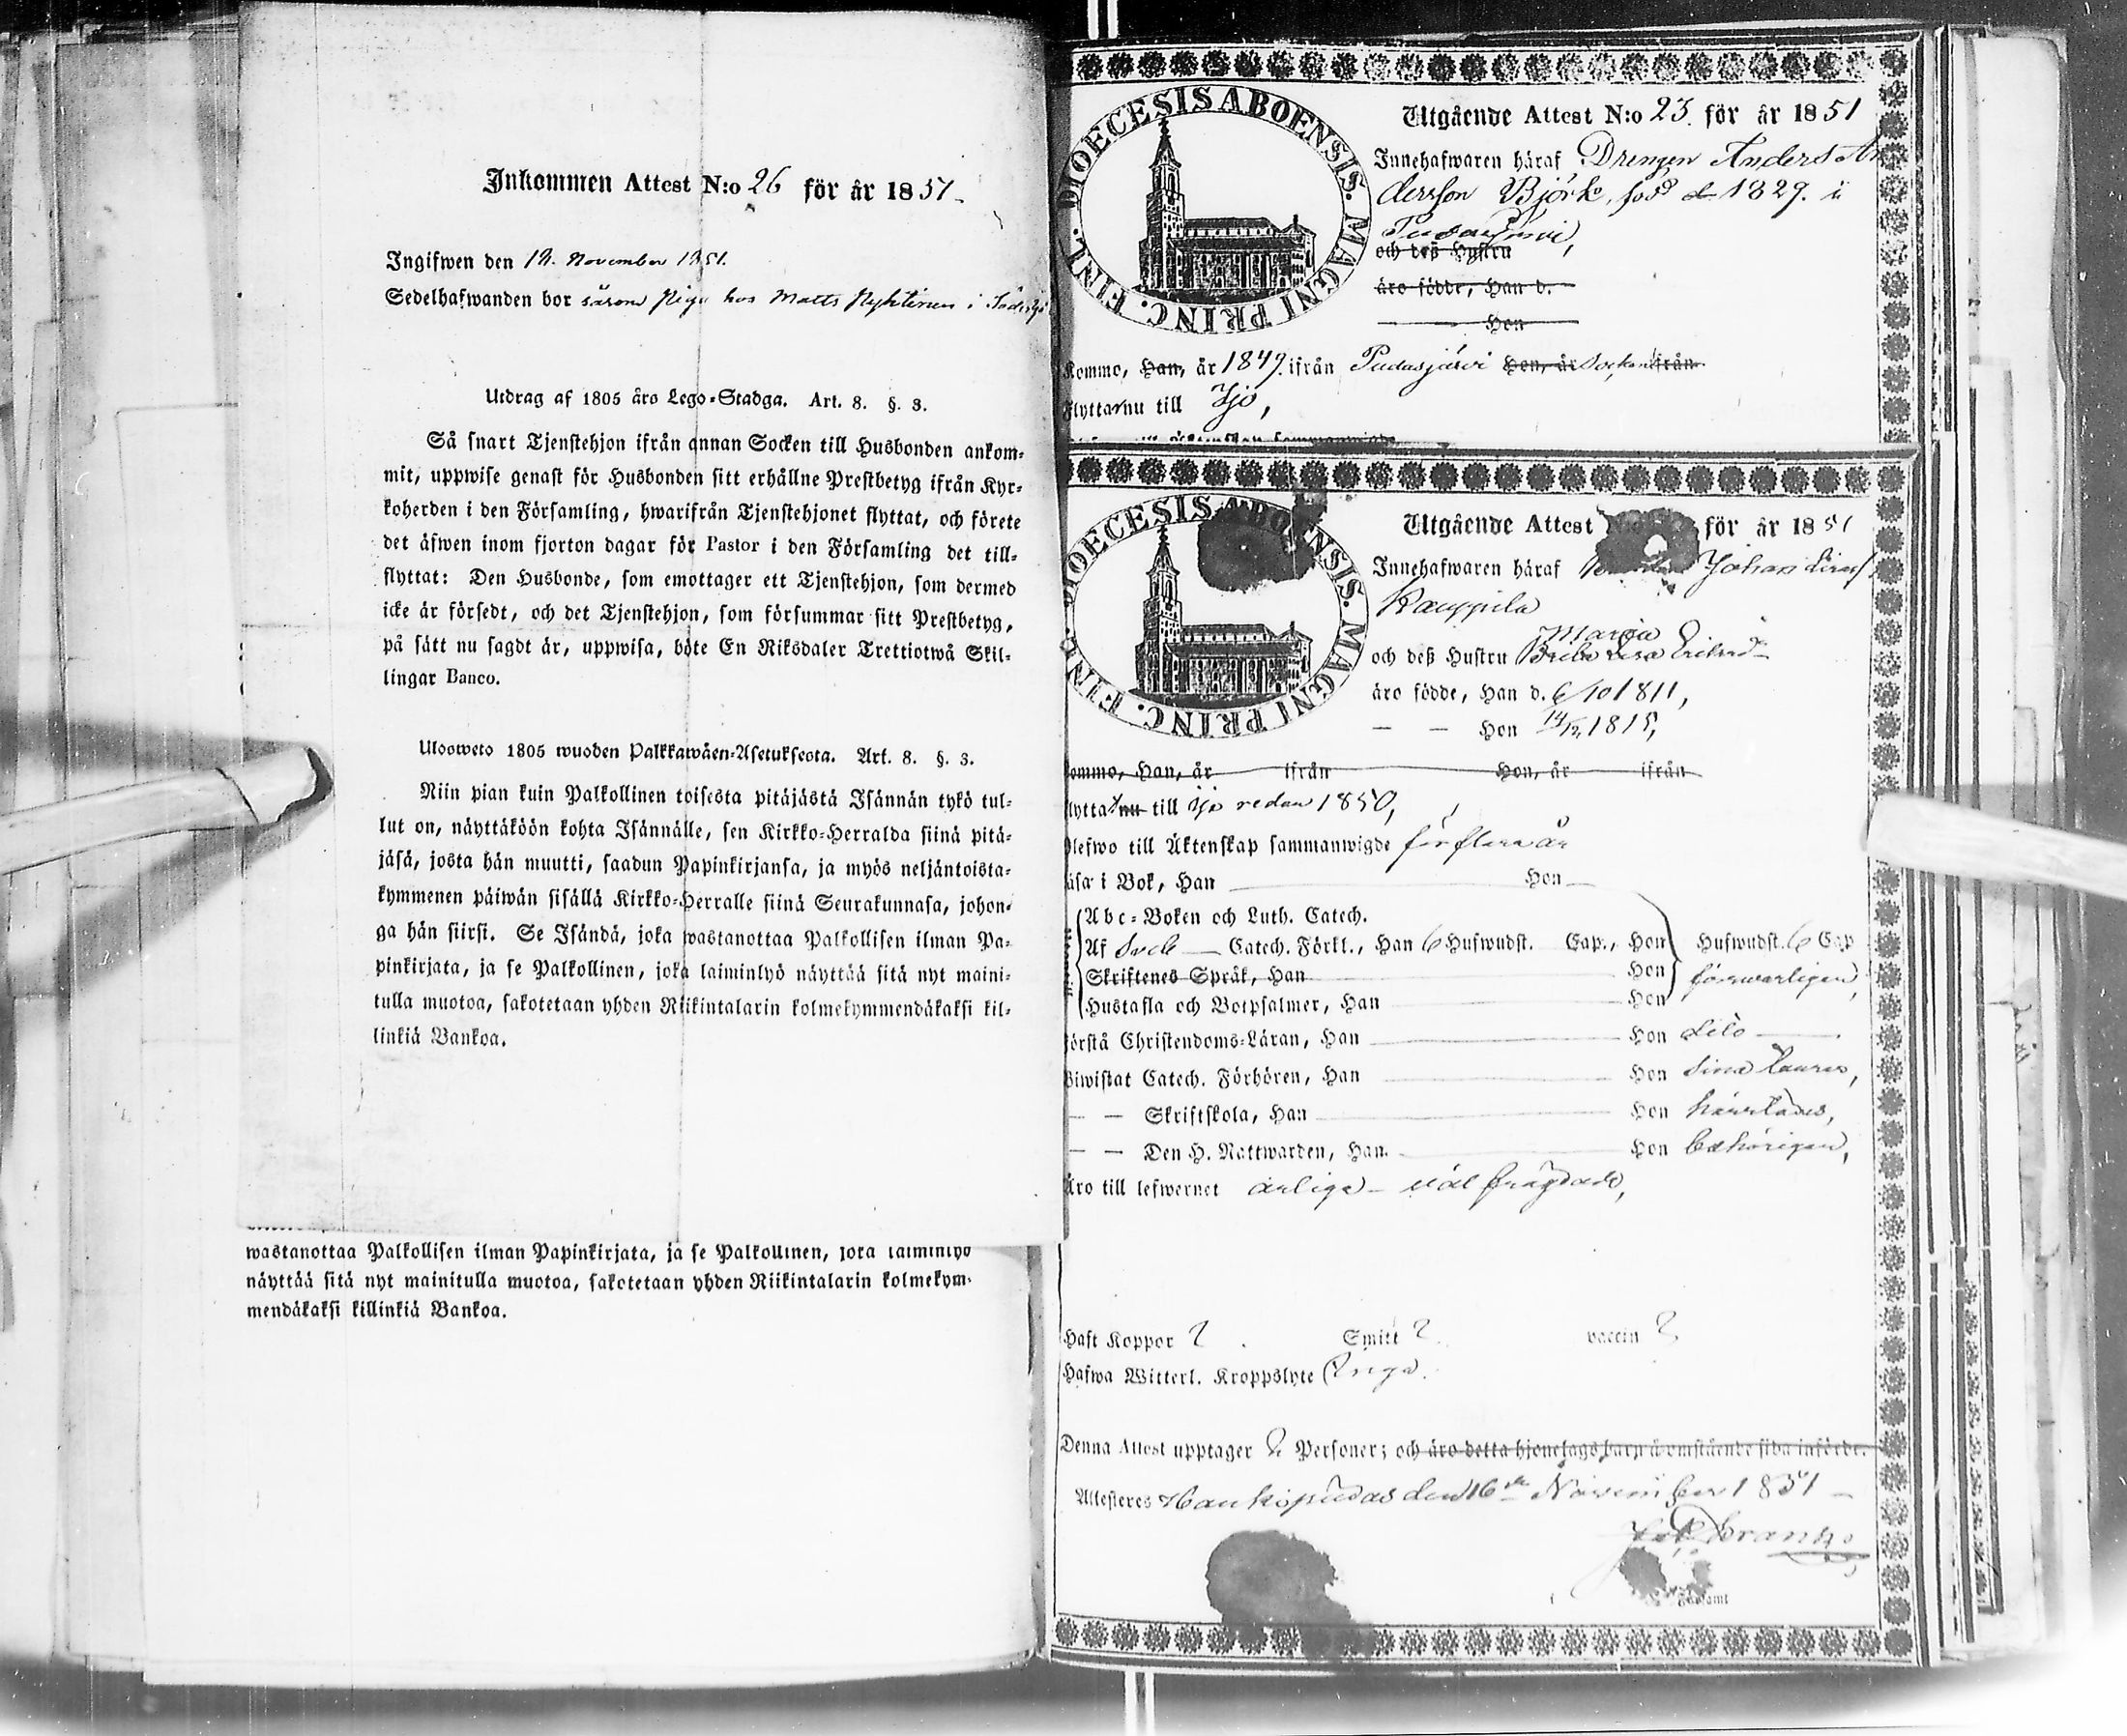 Inkommen Attest N:o 26 för år 1851.
Ingifwen den 12. November 1851.
Sedelhafwanden bor såsom Piga hos Matts Nyktinen i
Utdrag af 1805 års Lego-Stadga. Art. 8. §. 3.
Så snart Tjenstehjon ifrån annan Socken till Husbonden ankom-
mit, uppwise genast för Husbonden sitt erhållne Prestbetyg ifrån Kyr-
koherden i den Församling, hwarifrån Tjenstehjonet flyttat, och förete
det äfwen inom fjorton dagar för Pastor i den Församling det till-
flyttat: Den Husbonde, som emottager ett Tjenstehjon, som dermed
icke är försedt, och det Tjenstehjon, som försummar sitt Prestbetyg,
på sätt nu sagdt är, uppwisa, böte En Riksdaler Trettiotwå Skil-
lingar Banco.
Ulosweto 1805 wuoden Palkkawäen-Asetuksesta. Art. 8. §. 3.
Niin pian kuin Palkollinen toisesta pitäjästä Isännän tykö tul-
lut on, näyttäköön kohta Isännälle, sen Kirkko-Herralda siinä pitä-
jäsä, josta hän muutti, saadun Papinkirjansa, ja myös neljäntoista-
kymmenen päiwän sisällä Kirkko-Herralle siinä Seurakunnasa, johon-
ga hän siirsi. Se Isändä, joka wastanottaa Palkollisen ilman Pa-
pinkirjata, ja se Palkollinen, joka laiminlyö näyttää sitä nyt maini-
tulla muotoa, sakotetaan yhden Riikintalarin kolmekymmendäkaksi kil-
linkiä Bankoa.
wastanottaa Palkollisen ilman Papinkirjata, ja se Palkollinen, joka laiminlyö
näyttää sitä nyt mainitulla muotoa, sakotetaan yhden Riikintalarin kolmekym-
mendäkaksi killinkiä Bankoa.
DIOECESIS ABOENSIS. MAGNI PRINC. FINL.
Utgående Attest N:o 23. för år 1851
Innehafwaren häraf Drengen Anders An
dersson Björk, född d 1829. i
Pudasjärvi,
och deß Hustru
äro födde, Han d.
Hon
Kommo, Han, år 1849. ifrån Pudasjärvi Hon, år Socken ifrån
Flytta nu till Ijo,
DIOECESIS ABOENSIS. MAGNI PRINC. FINL.
Utgående Attest för år 1851
Innehafwaren häraf Johan
Kauppila
Maria
och deß Hustru Brita Lisa Eriksd:
äro födde, Han d. 6/10 1811,
— — Hon 14/12 1815,
ommo, Han, år ifrån Hon, år ifrån
lytta nu till Ijo redan 1850,
lefwo till Äktenskap sammanwigde för flera år
äsa i Bok, Han Hon
Abc-Boken och Luth. Catech.
Af Sveb Catech. Förkl., Han 6 Hufwudst. Cap., Hon Hufwudst. 6 Cap
Skriftenes Språk, Han Hon försvarligen,
Hustafla och Botpsalmer, Han Hon
örstå Christendoms-Läran, Han Hon
Biwistat Catech. Förhören, Han Hon sina
— — Skriftskola, Han Hon
— — Den H. Nattwarden, Han. Hon behörigen,
Äro till lefwernet ärliga — väl frägdade,
Haft Koppor 2 Smitt 2 vaccin 2
Hafwa Witterl. Kroppslyte Inga.
Denna Attest upptager 2 Personer; och äro detta hjonelags barn å omstående sida införde.
Attesteres Haukipudas den 16de November 1851